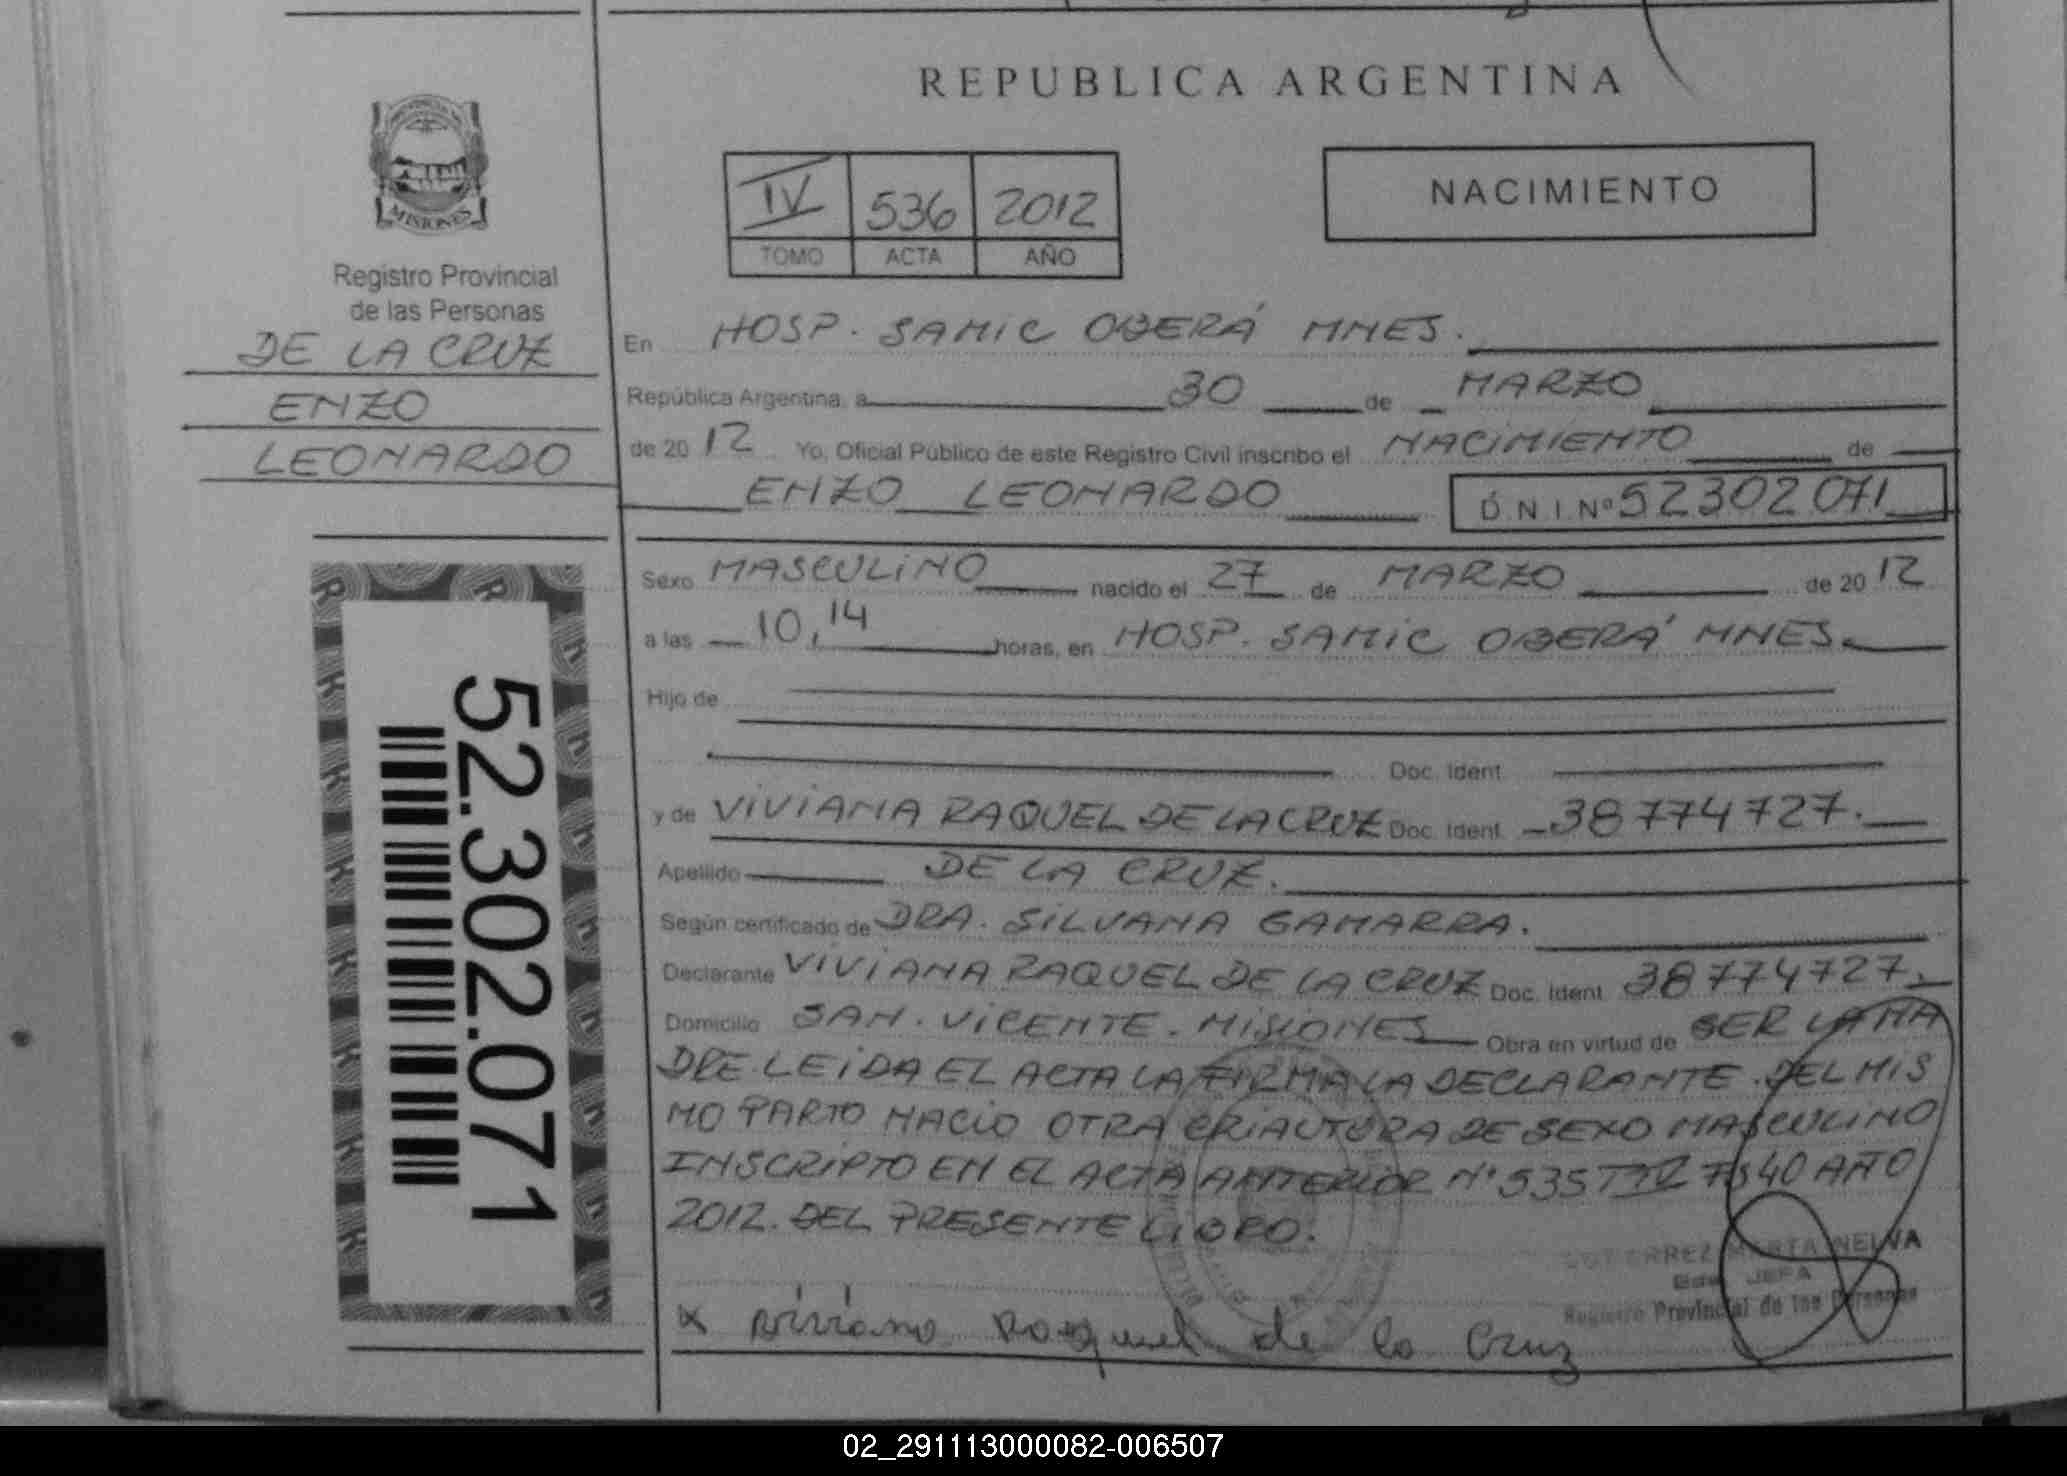 REPUBLICA ARGENTINA
MISIONES
Registro Provincial
de las Personas
DE LA CRUZ
ENZO
LEONARDO
52.302.071
IV 536 2012
TOMO ACTA AÑO
NACIMIENTO
En HOSP. SAMIC OBERÁ MNES.
República Argentina, a 30 de MARZO
de 2012 Yo, Oficial Público de este Registro Civil inscribo el NACIMIENTO de
ENZO LEONARDO D.N.I. Nº 52302071
Sexo MASCULINO nacido el 27 de MARZO de 2012
a las 10,14 horas, en HOSP. SAMIC OBERÁ MNES.
Hijo de
Doc. Ident.
y de VIVIANA RAQUEL DE LA CRUZ Doc. Ident. 38774727.
Apellido DE LA CRUZ.
Según certificado de DRA. SILVANA GAMARRA.
Declarante VIVIANA RAQUEL DE LA CRUZ Doc. Ident. 38774727.
Domicilio SAN. VICENTE. MISIONES Obra en virtud de SER LA MA
DRE. LEIDA EL ACTA LA FIRMA LA DECLARANTE. DEL MIS
MO PARTO NACIO OTRA CRIAUTURA DE SEXO MASCULINO
INSCRIPTO EN EL ACTA ANTERIOR Nº 535 TIV Fº 40 AÑO
2012. DEL PRESENTE LIBRO.
GUTIERREZ MARTA NELVA
JEFA
Registro Provincial de las Personas
X viviana Raquel de la Cruz
02_291113000082-006507